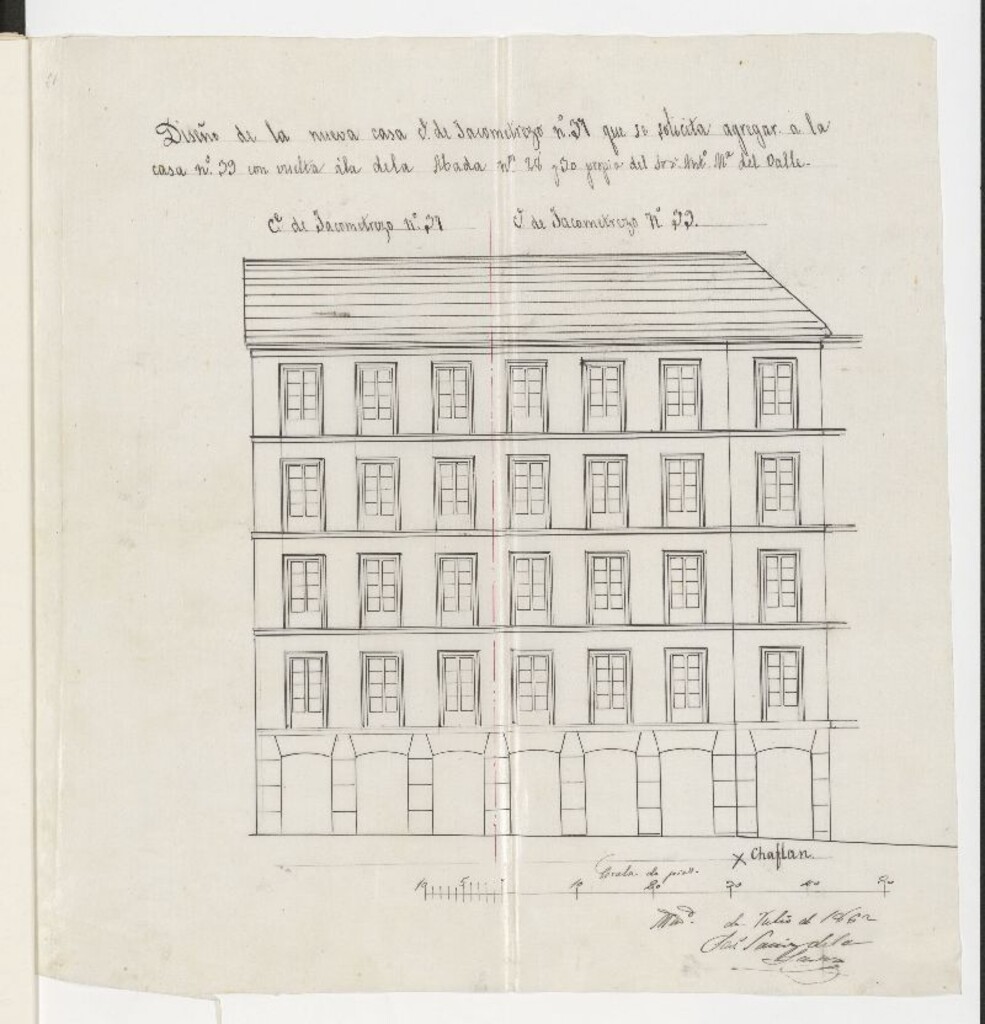 Diseño de la nueva casa C.e de Jacometrezo n.º 37 que se solicita agregar a la
casa n.º 39 con vuelta á la de la Abada n.os 28 y 30 propia del Sr. Ant.º M.ª del Valle.
C.e de Jacometrezo n.º 37 C.e de Jacometrezo N.º 39.
x Chaflan.
Escala de pies.
10 5 10 20 30 40 50
Mad.d de Julio de 1862
José
de la